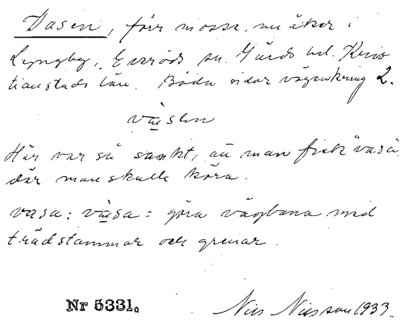 Vasen, förr mosse, nu åker i
Lyngby, Everöds sn. Gärds hd. Kris
tianstads län. Båda sidor vägsträckning 2.
väsen
Här var så sankt, att man fick "vasa"
där man skulle köra.
vasa: väsa = göra vägbana med
trädstammar och grenar.
Nr 5331.
Nils Nilsson 1933.